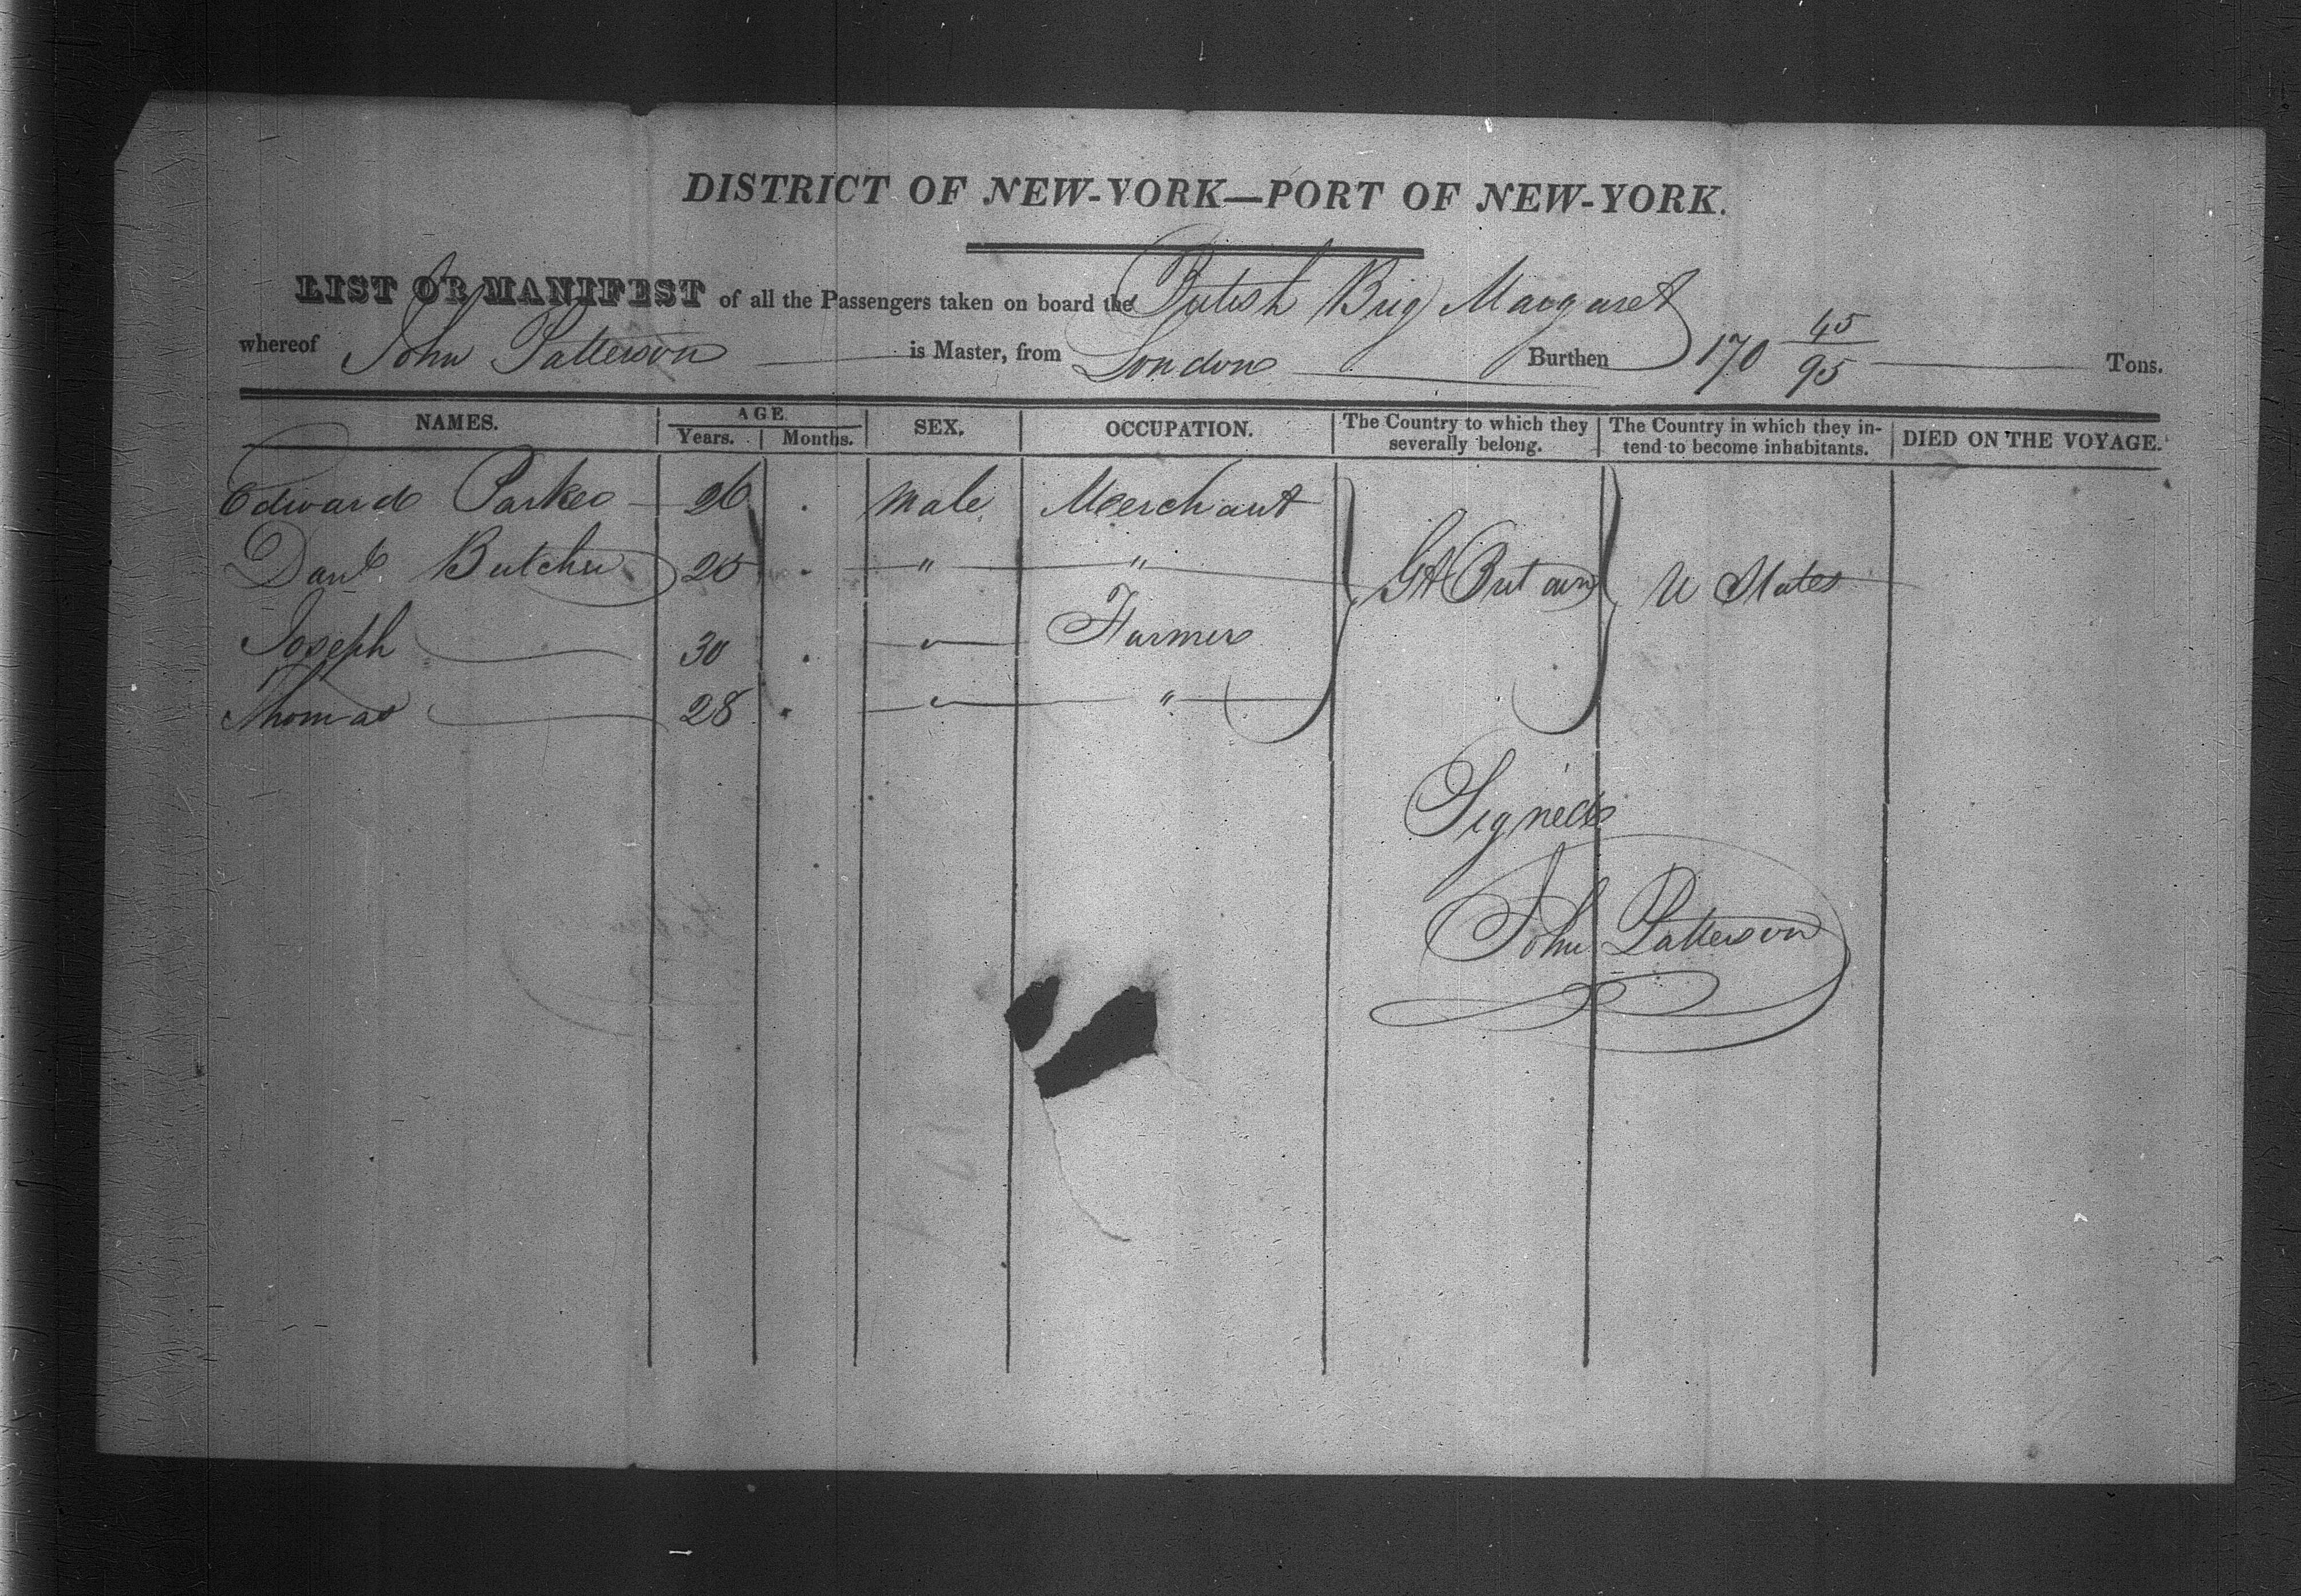 DISTRICT OF NEW-YORK—PORT OF NEW-YORK.
LIST OR MANIFEST of all the Passengers taken on board the British Brig Margaret
whereof John Patterson is Master, from London Burthen 170 45/95 Tons.
NAMES. AGE. Years. Months. SEX. OCCUPATION. The Country to which they severally belong. The Country in which they intend to become inhabitants. DIED ON THE VOYAGE.
Edward Parker 26 . Male Merchant
Danl Butcher 25 . " " Gt Britain U States
Joseph 30 . " Farmer
Thomas 28 . " "
Signed
John Patterson